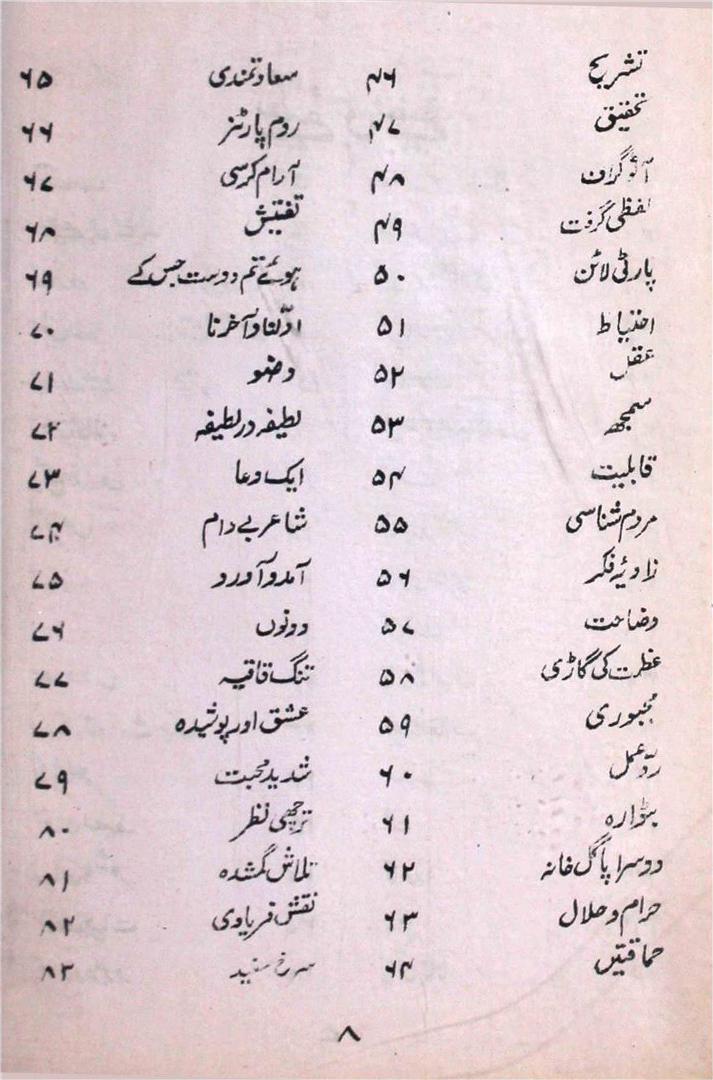 تشریح ۴۶
تحقیق ۴۷
آٹوگراف ۴۸
لفظی گرفت ۴۹
پارٹی لائن ۵۰
احتیاط ۵۱
عقل ۵۲
سمجھ ۵۳
قابلیت ۵۴
مردم شناسی ۵۵
زاویۂ فکر ۵۶
وضاحت ۵۷
عظمت کی گاڑی ۵۸
مجبوری ۵۹
ردّعمل ۶۰
بٹوارہ ۶۱
دوسرا پاگل خانہ ۶۲
حرام و حلال ۶۳
حماقتیں ۶۴
سعادتمندی ۶۵
روم پارٹنر ۶۶
آرام کرسی ۶۷
تفتیش ۶۸
ہوئے تم دوست جس کے ۶۹
اوّلنا و آخرنا ۷۰
وضو ۷۱
لطیفہ در لطیفہ ۷۲
ایک دعا ۷۳
شاعر بے دام ۷۴
آمد و آورد ۷۵
دونوں ۷۶
تنگ قافیہ ۷۷
عشق اور پوشیدہ ۷۸
شدید محبت ۷۹
ترچھی نظر ۸۰
تلاش گمشدہ ۸۱
نقش فریادی ۸۲
سرخ سفید ۸۳
۸